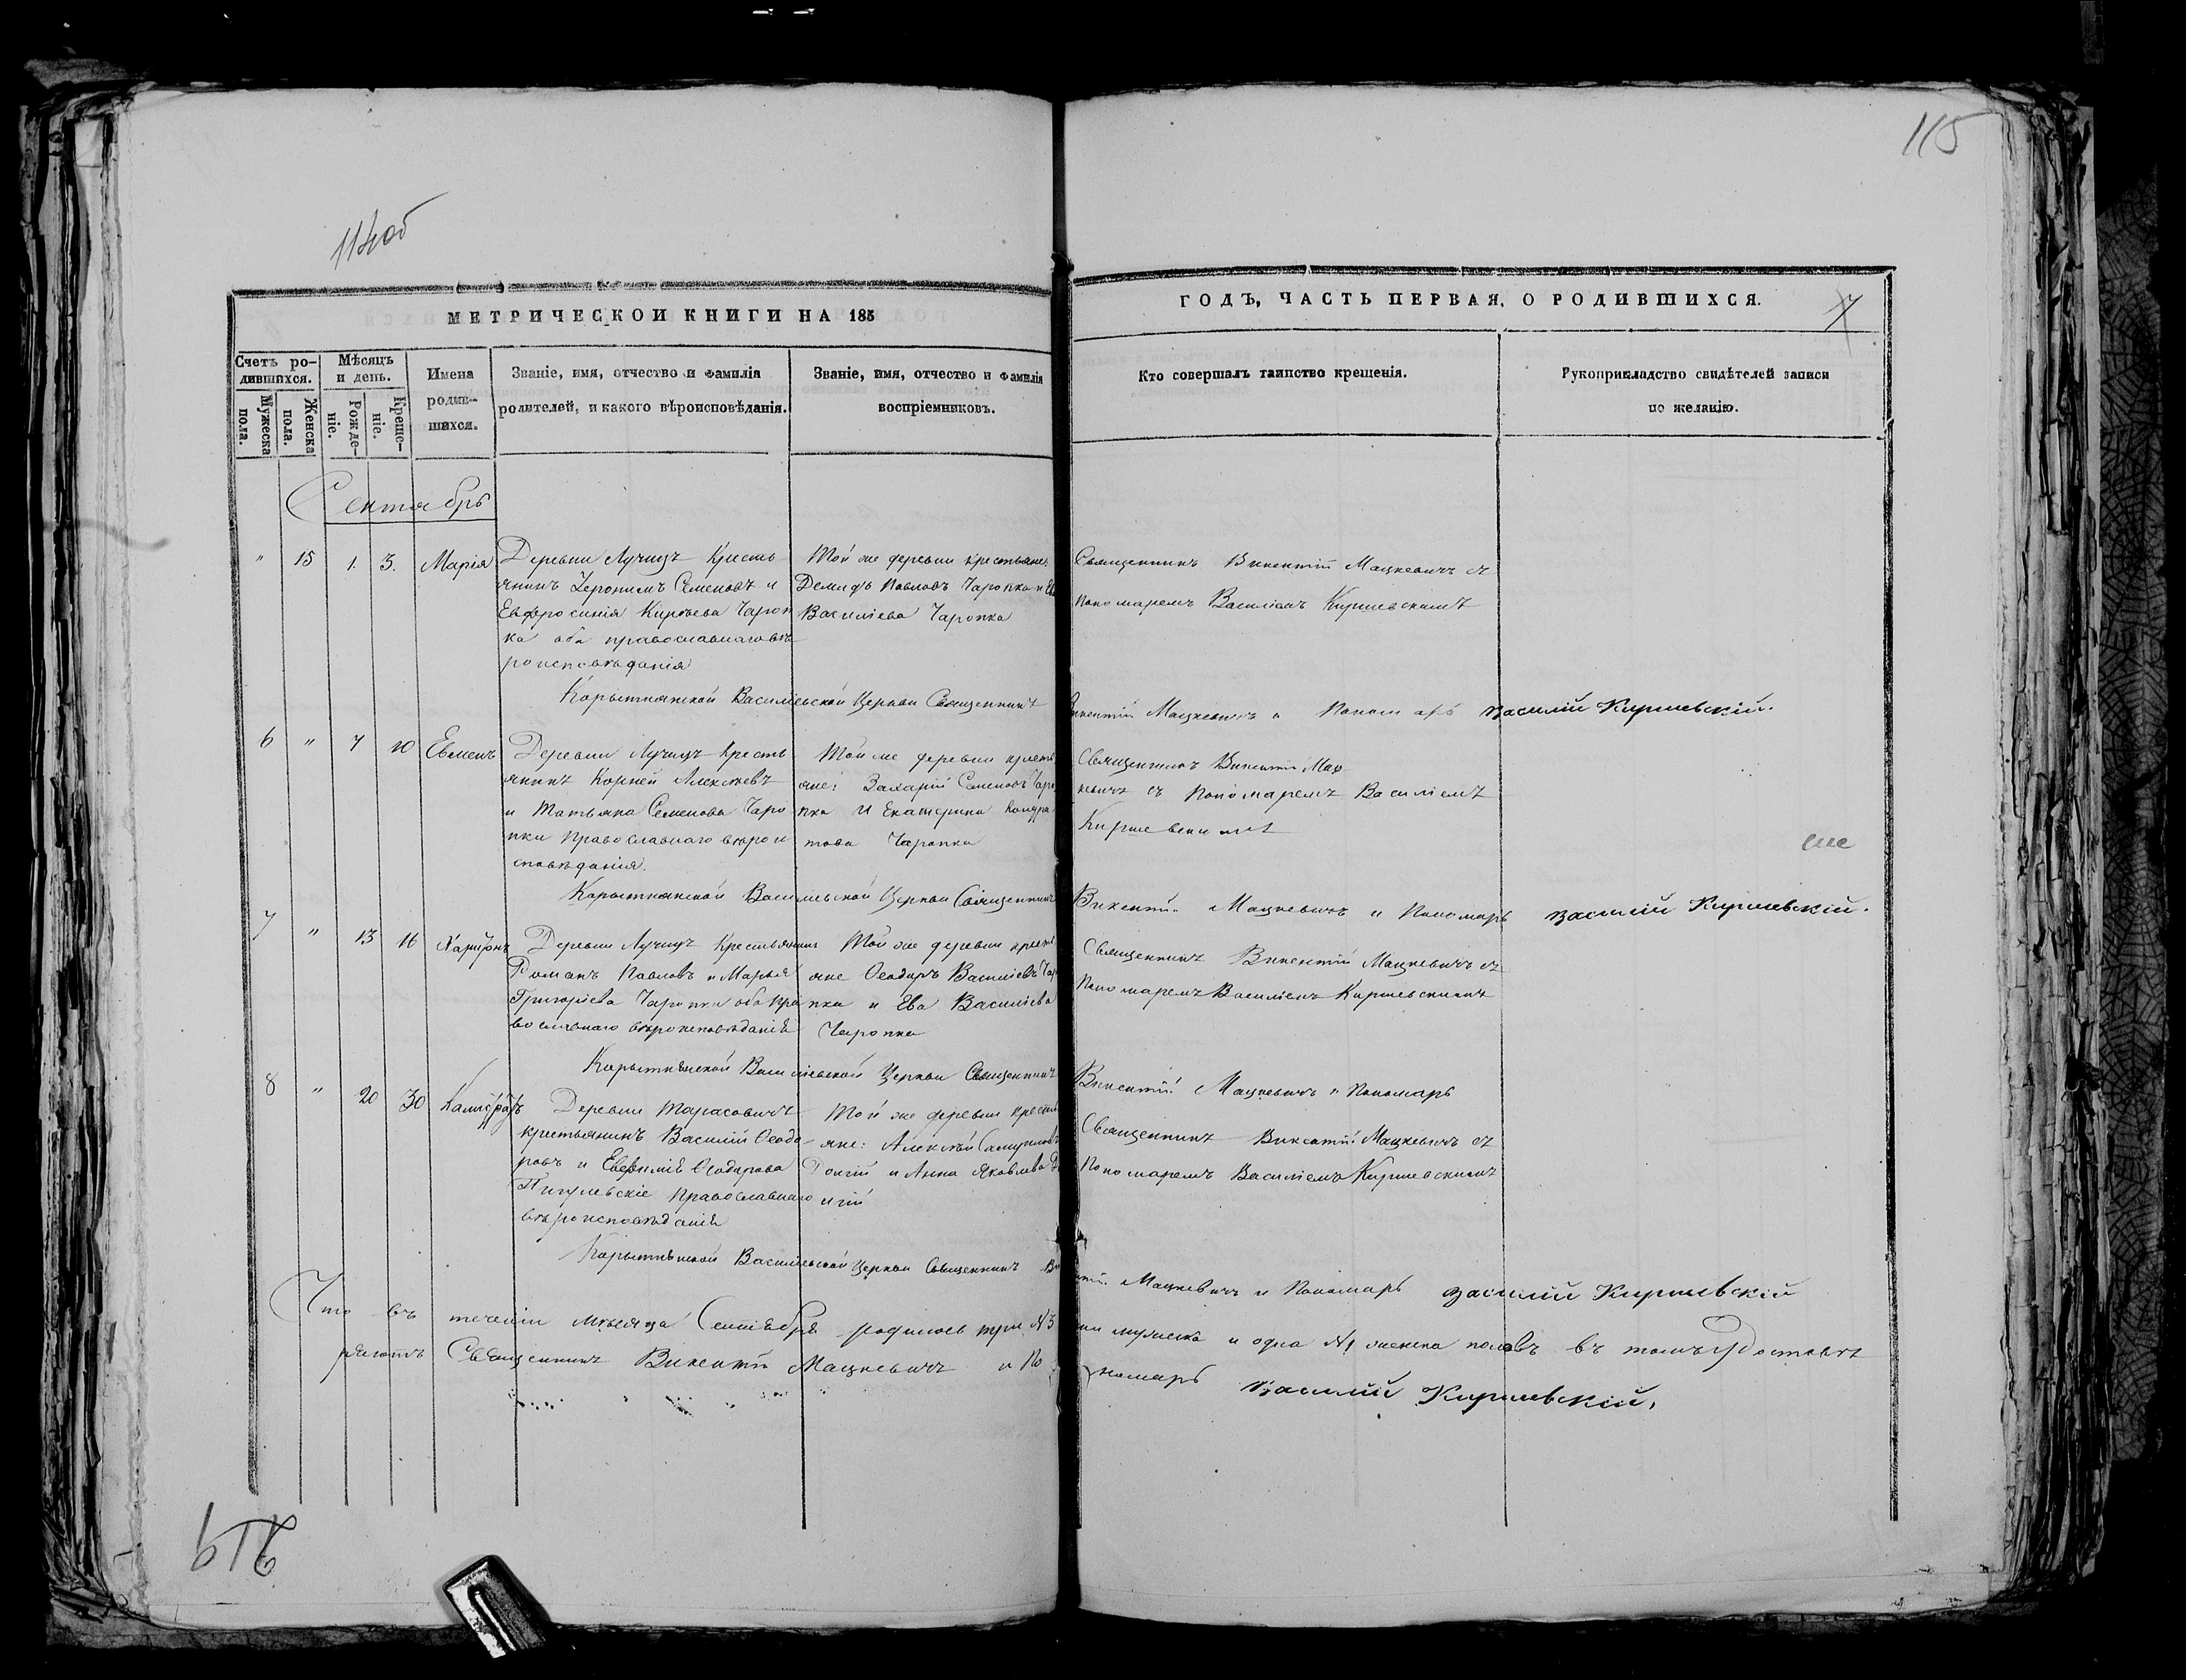 114об
115
МЕТРИЧЕСКОИ КНИГИ НА 185
ГОДЪ, ЧАСТЬ ПЕРВАЯ, О РОДИВШИХСЯ.
7
Счетъ ро-
дившихся.
Мужеска
пола.
Женска
пола.
Мѣсяцъ
и день.
Рожде-
ніе.
Креще-
ніе.
Имена
родив-
шихся.
Званіе, имя, отчество и фамилія
родителей, и какого вѣроисповѣданія.
Званіе, имя, отчество и фамилія
воспріемниковъ.
Кто совершалъ таинство крещенія.
Рукоприкладство свидѣтелей записи
по желанію.
Сентябрь
" 15 1. 3. Марія
Деревни Лучицъ Кресть
янинъ Іеронимъ Семеновъ и
Евфросинія Киръева Чароп
ка оба православнаго вѣ
роисповѣданія
Той же деревни крестьяне:
Демидъ Павловъ Чаропка и Ева
Василіева Чаропка
Священникъ Викентій Мацкевичъ съ
пономаремъ Василіемъ Киршевскимъ
Корытнянской Василіевской Церкви Священникъ Викентій Мацкевичъ и Пономарь Василій Киршевскій.
6 " 7 10 Евменъ
Деревни Лучицъ Кресть
янинъ Корней Алексѣевъ
и Татьяна Семенова Чаро
пки Православнаго вѣрои
сповѣданія.
Той же деревни кресть
яне: Захарій Семеновъ Чаро
пка и Екатерина Кондра
това Чаропка
Священникъ Викентій Мац
кевичъ съ Пономаремъ Василіемъ
Киршевскимъ
Корытнянской Василіевской Церкви Священникъ Викентій Мацкевичъ и Пономарь Василій Киршевскій.
7 " 13 16 Харитонъ
Деревни Лучицъ Крестьянинъ
Романъ Павловъ и Марья
Григоріева Чаропки оба Пра
вославнаго вѣроисповѣданія
Той же деревни кресть
яне Ѳеодоръ Василіевъ Чаро
пка и Ева Василіева
Чаропка
Священникъ Викентій Мацкевичъ съ
Пономаремъ Василіемъ Киршевскимъ
Корытнянской Василіевской Церкви Священникъ Викентій Мацкевичъ и Пономарь
8 " 20 30 Калистратъ
Деревни Тарасовичъ
крестьянинъ Василій Ѳеодо
ровъ и Евфимія Ѳеодорова
Пигулевскіе Православнаго
вѣроисповѣданія
Той же деревни кресть
яне: Алексѣй Самуиловъ
и Анна Яковлева
Священникъ Викентій Мацкевичъ съ
Пономаремъ Василіемъ Киршевскимъ
Корытнянской Василіевской Церкви Священникъ Мацкевичъ и Пономарь Василій Киршевскій
Что въ теченіи мѣсяца Сентября родилось три №3 мужеска и одна №1 женска половъ въ томъ удостовѣ
ряютъ Священникъ Викентій Мацкевичъ и Пономарь Василій Киршевскій.